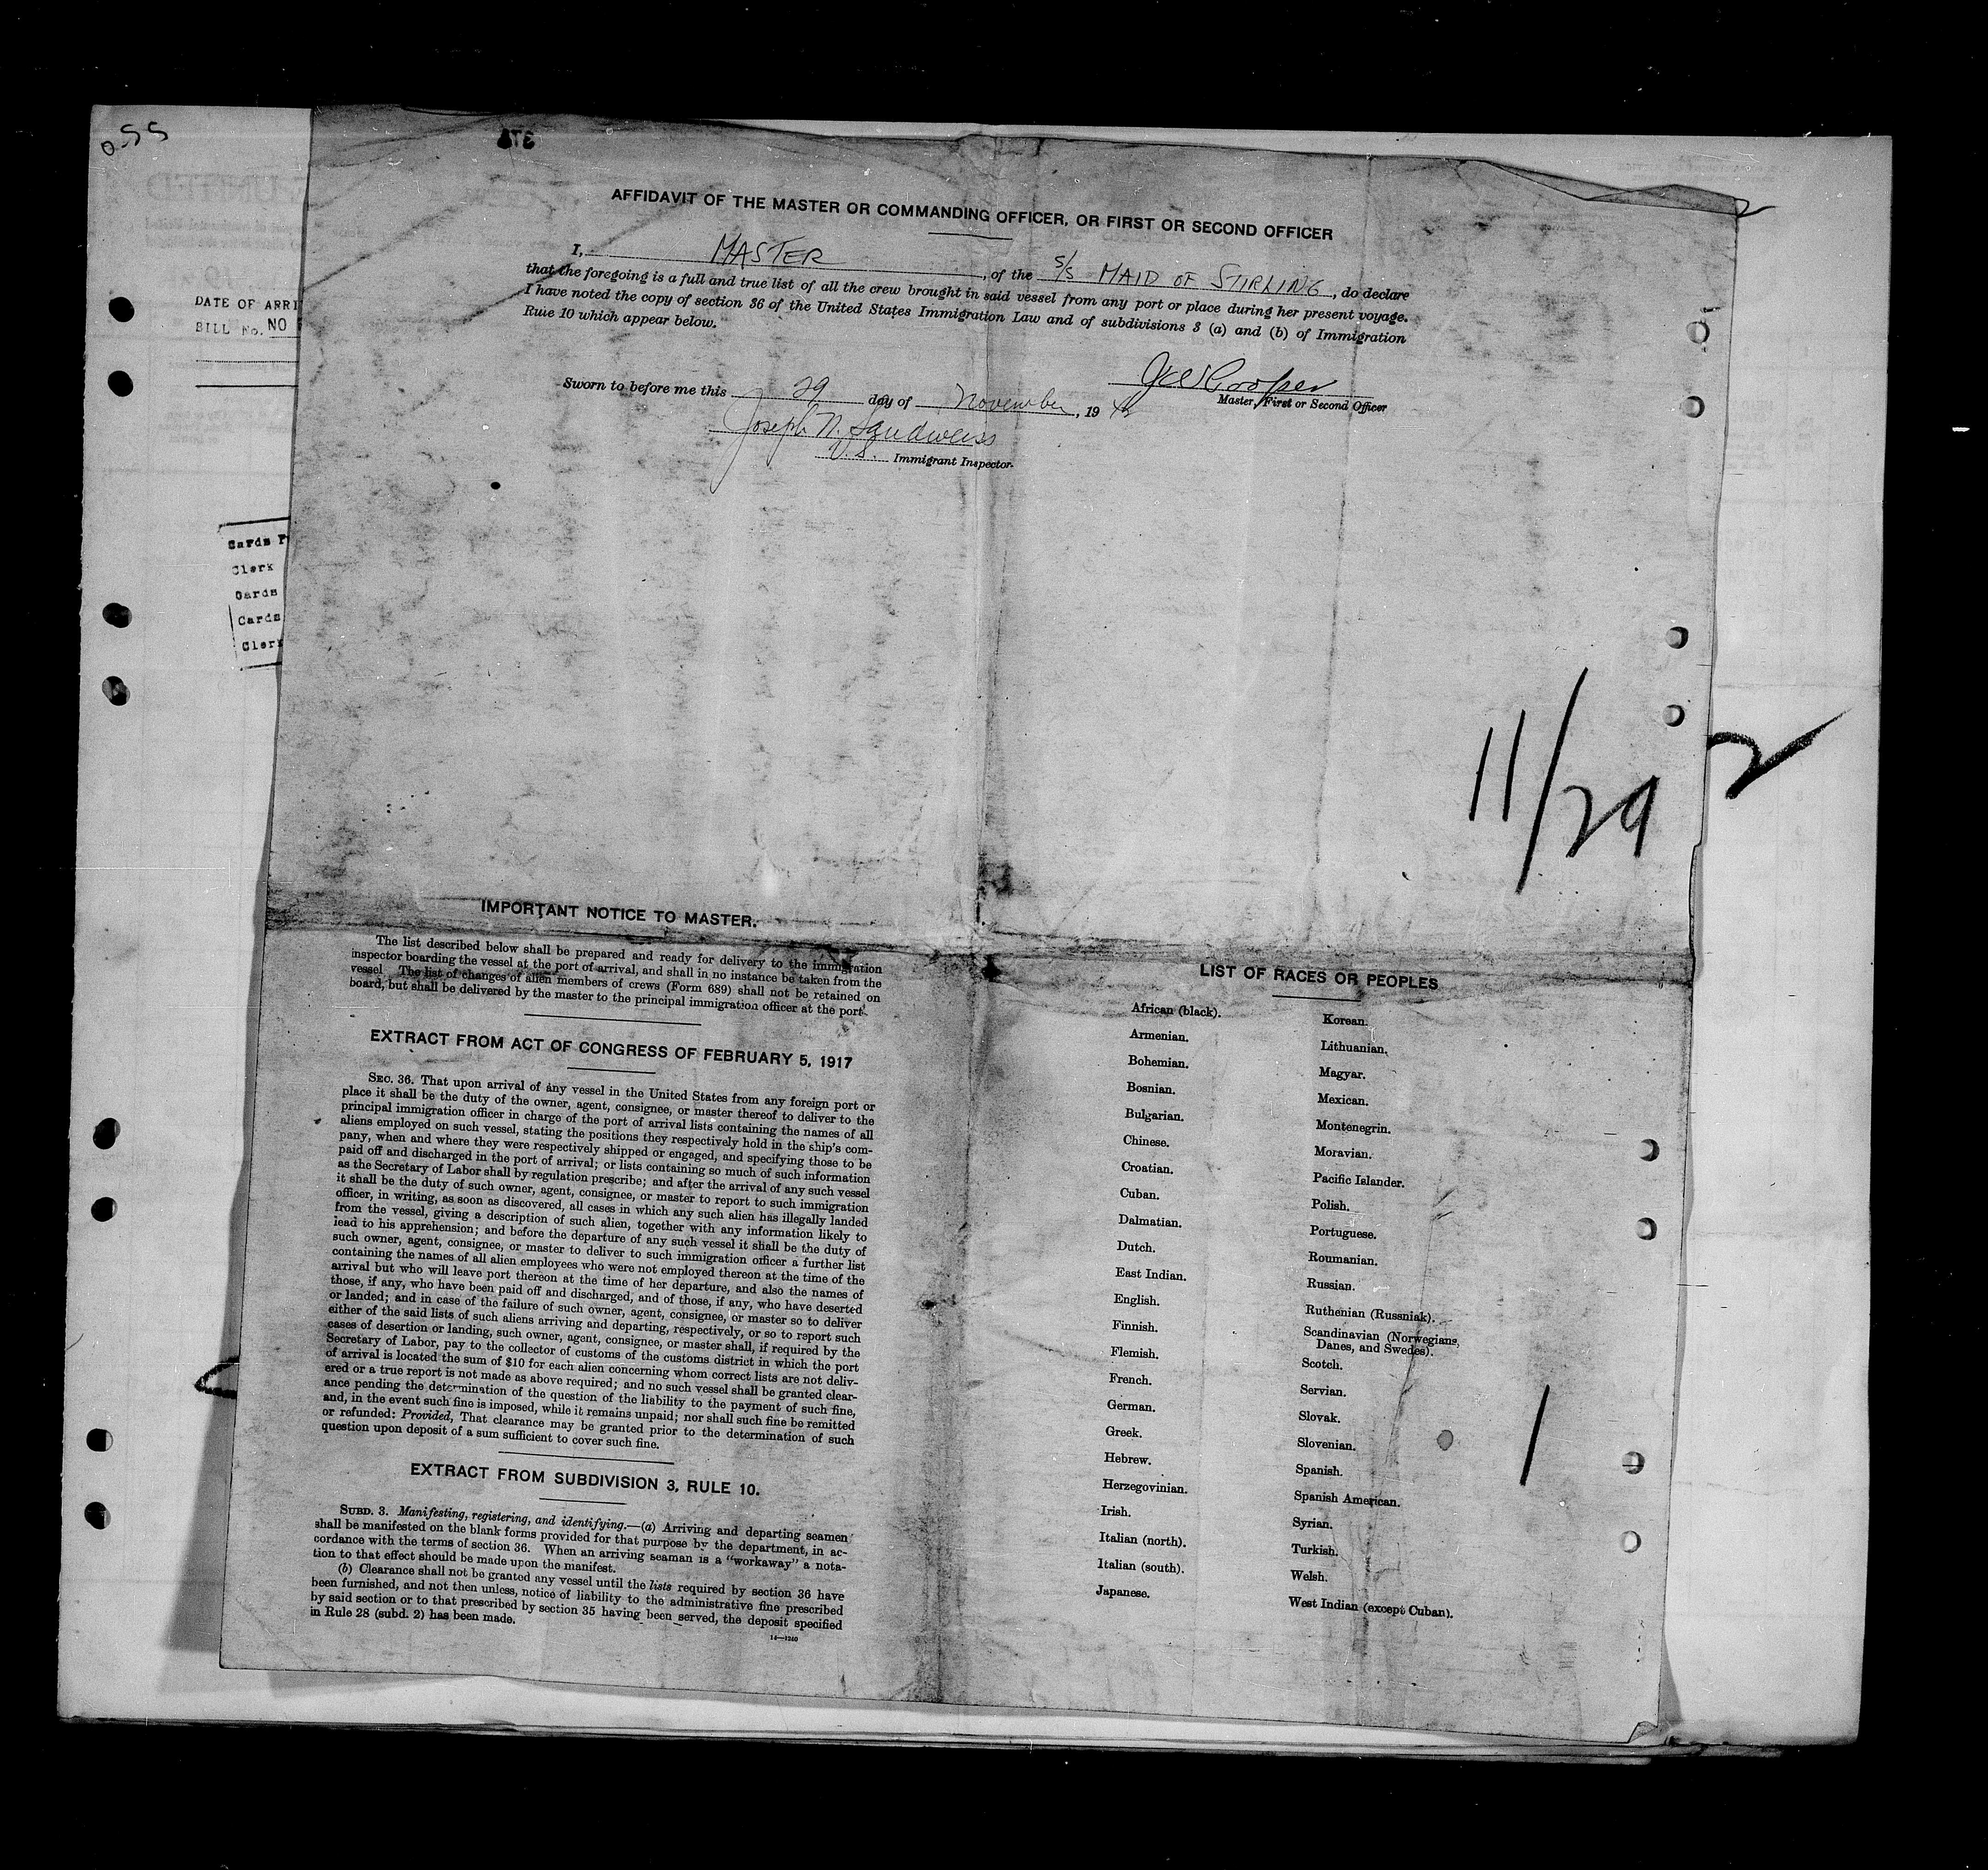 0-55
DATE OF ARRI
BILL No. NO
Cards F
Clerk
Cards
Cards
Clerk
AFFIDAVIT OF THE MASTER OR COMMANDING OFFICER, OR FIRST OR SECOND OFFICER
I, MASTER, of the S/S MAID OF STIRLING, do declare
that the foregoing is a full and true list of all the crew brought in said vessel from any port or place during her present voyage.
I have noted the copy of section 36 of the United States Immigration Law and of subdivisions 3 (a) and (b) of Immigration
Rule 10 which appear below.
Cooper
Master, First or Second Officer
Sworn to before me this 29 day of November, 19
Joseph N. Sandweiss
U.S. Immigrant Inspector.
11/29
2
IMPORTANT NOTICE TO MASTER.
The list described below shall be prepared and ready for delivery to the immigration
inspector boarding the vessel at the port of arrival, and shall in no instance be taken from the
vessel. The list of changes of alien members of crews (Form 689) shall not be retained on
board, but shall be delivered by the master to the principal immigration officer at the port.
EXTRACT FROM ACT OF CONGRESS OF FEBRUARY 5, 1917
SEC. 36. That upon arrival of any vessel in the United States from any foreign port or
place it shall be the duty of the owner, agent, consignee, or master thereof to deliver to the
principal immigration officer in charge of the port of arrival lists containing the names of all
aliens employed on such vessel, stating the positions they respectively hold in the ship's com-
pany, when and where they were respectively shipped or engaged, and specifying those to be
paid off and discharged in the port of arrival; or lists containing so much of such information
as the Secretary of Labor shall by regulation prescribe; and after the arrival of any such vessel
it shall be the duty of such owner, agent, consignee, or master to report to such immigration
officer, in writing, as soon as discovered, all cases in which any such alien has illegally landed
from the vessel, giving a description of such alien, together with any information likely to
lead to his apprehension; and before the departure of any such vessel it shall be the duty of
such owner, agent, consignee, or master to deliver to such immigration officer a further list
containing the names of all alien employees who were not employed thereon at the time of the
arrival but who will leave port thereon at the time of her departure, and also the names of
those, if any, who have been paid off and discharged, and of those, if any, who have deserted
or landed; and in case of the failure of such owner, agent, consignee, or master so to deliver
either of the said lists of such aliens arriving and departing, respectively, or so to report such
cases of desertion or landing, such owner, agent, consignee, or master shall, if required by the
Secretary of Labor, pay to the collector of customs of the customs district in which the port
of arrival is located the sum of $10 for each alien concerning whom correct lists are not deliv-
ered or a true report is not made as above required; and no such vessel shall be granted clear-
ance pending the determination of the question of the liability to the payment of such fine,
and, in the event such fine is imposed, while it remains unpaid; nor shall such fine be remitted
or refunded: Provided, That clearance may be granted prior to the determination of such
question upon deposit of a sum sufficient to cover such fine.
EXTRACT FROM SUBDIVISION 3, RULE 10.
SUBD. 3. Manifesting, registering, and identifying.—(a) Arriving and departing seamen
shall be manifested on the blank forms provided for that purpose by the department, in ac-
cordance with the terms of section 36. When an arriving seaman is a "workaway" a nota-
tion to that effect should be made upon the manifest.
(b) Clearance shall not be granted any vessel until the lists required by section 36 have
been furnished, and not then unless, notice of liability to the administrative fine prescribed
by said section or to that prescribed by section 35 having been served, the deposit specified
in Rule 28 (subd. 2) has been made.
14—1240
LIST OF RACES OR PEOPLES
African (black).
Armenian.
Bohemian.
Bosnian.
Bulgarian.
Chinese.
Croatian.
Cuban.
Dalmatian.
Dutch.
East Indian.
English.
Finnish.
Flemish.
French.
German.
Greek.
Hebrew.
Herzegovinian.
Irish.
Italian (north).
Italian (south).
Japanese.
Korean.
Lithuanian.
Magyar.
Mexican.
Montenegrin.
Moravian.
Pacific Islander.
Polish.
Portuguese.
Roumanian.
Russian.
Ruthenian (Russniak).
Scandinavian (Norwegians,
Danes, and Swedes).
Scotch.
Servian.
Slovak.
Slovenian.
Spanish.
Spanish American.
Syrian.
Turkish.
Welsh.
West Indian (except Cuban).
1